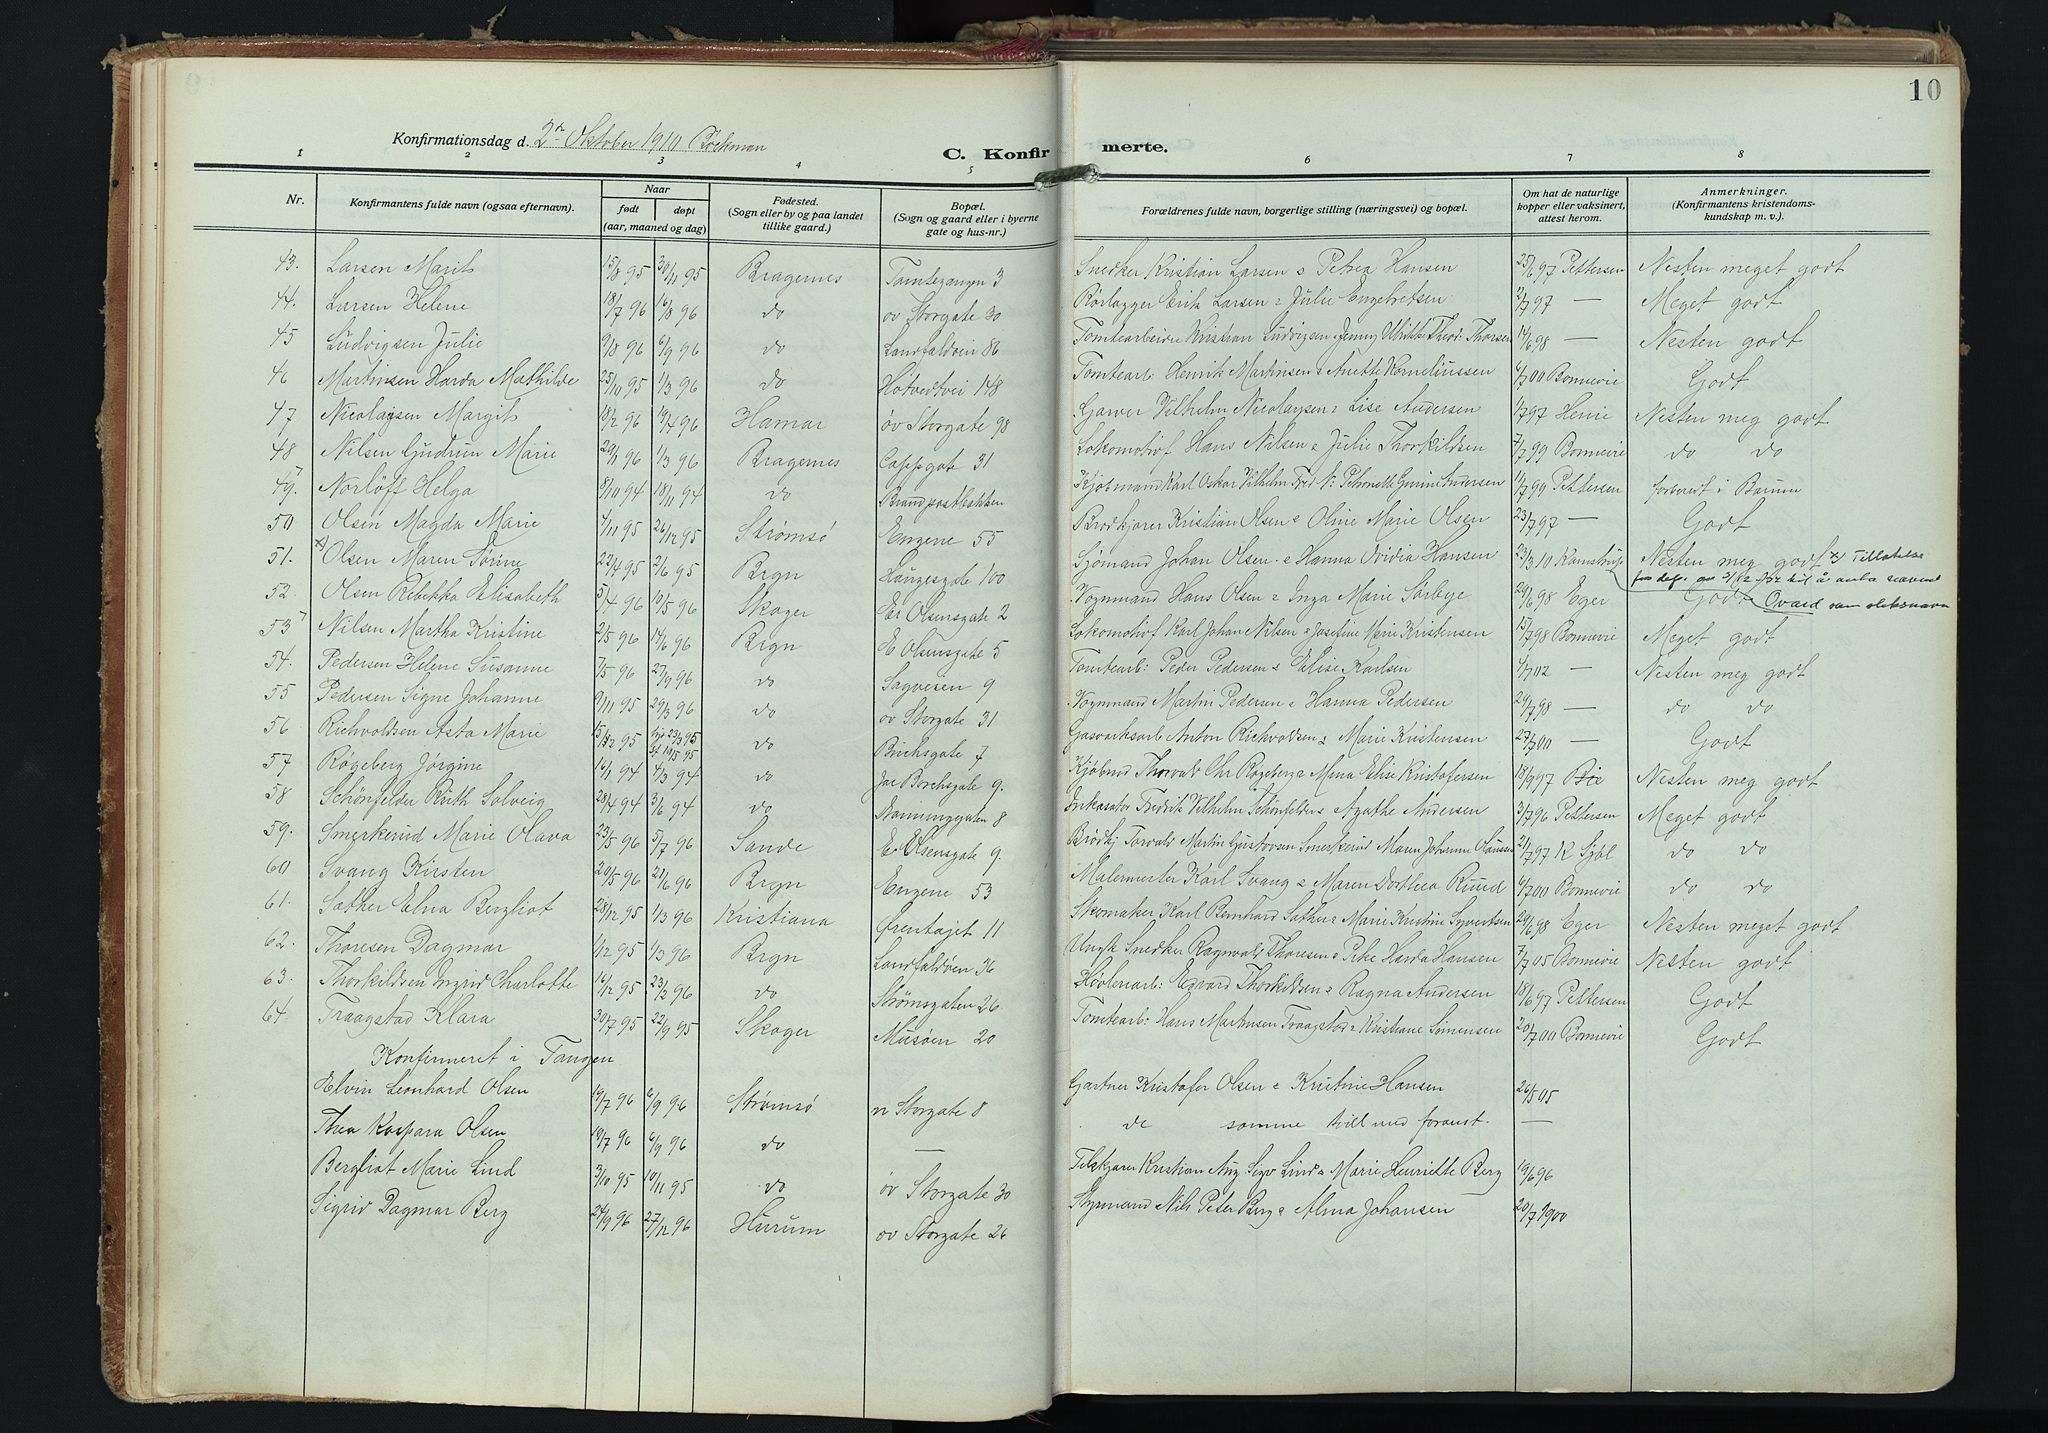 10
Konfirmationsdag d. 2den Oktober 1910 Böckman
C. Konfirmerte.
1 2 3 4 5 6 7 8
Nr. Konfirmantens fulde navn (ogsaa efternavn). Naar født døpt (aar, maaned og dag) Fødested. (Sogn eller by og paa landet tillike gaard.) Bopæl. (Sogn og gaard eller i byerne gate og hus-nr.) Forældrenes fulde navn, borgerlige stilling (næringsvei) og bopæl. Om hat de naturlige kopper eller vaksinert, attest herom. Anmerkninger. (Konfirmantens kristendomskundskap m. v.).
43. Larsen Marit 15/8 95 30/11 95 Bragernes Tomtegangen 3 Snedker Kristian Larsen o Petrea Hansen 25/6 97 Pettersen Nesten meget godt
44. Larsen Helene 18/7 96 16/8 96 do øv Storgate 30 Rørlægger Erik Larsen o Julie Engebretsen /7 97 — Meget godt
45 Ludvigsen Julie 9/8 96 6/9 96 do Landfaldvein 86 Tomtearbeider Kristian Ludvigsen o Jenny Thorsen 14/6 98 — Nesten godt
46 Martinsen Harda Mathilde 25/10 95 1/3 96 do Hotvedtvei 148 Tomtearb: Henrik Martinsen o Anette Korneliussen 6/7 00 Bonnevie Godt
47 Nicolaysen Margit 18/2 96 19/4 96 Hamar øv Storgate 98 Garver Vilhelm Nicolaysen o Lise Andersen 1/7 97 Nesten meg godt
48 Nilsen Gudrun Marie 29/1 96 1/3 96 Bragernes Cappsgate 31 Lokomotivf Hans Nilsen o Julie Thorkildsen 7/7 99 Bonnevie do do
49. Norløff Helga 8/10 94 18/11 94 do Brandpostbakken Kjøbmand Karl Oskar Vilhelm Fred N. Andersen 11/7 99 Pettersen forberedt i Bærum
50 Olsen Magda Marie 4/11 95 26/12 95 Strømsø Engene 55 Brødkjører Kristian Olsen o Oline Marie Olsen 23/7 97 — Godt
51. x) Olsen Maren Torine 23/4 95 2/6 95 Brgn Haugesgate 100 Sjømand Johan Olsen o Hanna Ovidia Hansen 23/3 10 Kamstrup Nesten meg godt x) Tillatelse
fra dep. av 3/12 - /52 til å anta navnet
52. Olsen Rebekka Elisabeth 5/4 96 10/5 96 Skoger Ev Olsensgate 2 Vognmand Hans Olsen o Inga Marie Sørbye 29/6 98 Eger Godt Ovard som slektsnavn
53 Nilsen Martha Kristine 2/5 96 14/6 96 Brgn E Olsensgate 5 Lokomotivf Karl Johan Nilsen o Josefine Marie Kristensen 15/7 98 Bonnevie Meget godt
54. Pedersen Helene Susanne 7/5 96 27/9 96 do Sagveien 9 Tomtearb: Peder Pedersen o Elise Karlsen 4/7 02 — Nesten meg godt
55 Pedersen Signe Johanne 9/11 95 29/3 96 do øv Storgate 31 Vognmand Martin Pedersen o Hanna Pedersen 29/7 98 — do do
56 Richvoldsen Asta Marie 15/12 95 do Buchsgate 7 Gasværksarb Anton Richvoldsen o Marie Kristensen 27/7 00 — Godt
57 Røgeberg Jørgine 16/1 94 4/3 94 do Jac Borchsgate 9. Kjøbmd Thorvald Chr Røgeberg o Mina Elise Kristofersen 18/9 97 Nesten meg godt
58 Schönfelder Ruth Solveig 28/4 94 3/6 94 do Danninggaten 8 Inkasator Fredrik Vilhelm Schönfelder o Agathe Andersen 3/7 96 Pettersen Meget godt
59. Smerkerud Marie Olava 23/5 96 5/7 96 Sande Ev Olsensgate 9. Brødkj Torvald Martin Gustavsen Smerkerud Maren Johanne Olaussen 21/7 97 do do
60 Svang Kirsten 20/5 96 21/6 96 Brgn Engene 53 Malermester Karl Svang o Maren Dorthea Ruud 6/7 00 Bonnevie do do
61. Sæther Elna Bergliot 28/12 95 1/3 96 Kristiana Ørentøjet 11 Skomaker Karl Bernhard Sæther o Marie Kristine Syvertsen 29/6 98 Eger Nesten meget godt
62. Thoresen Dagmar 1/12 95 1/3 96 Brgn Landfaldvein 36 Snedker Ragnvald Thoresen o Hansen 7/7 05 Bonnevie Nesten godt
63. Thorkildsen Ingrid Charlotte 16/12 95 23/2 96 do Strømsgaten 26 Høvleriarb: Edvard Thorkildsen o Ragna Andersen 18/6 97 Pettersen Godt
64 Traagstad Klara 30/7 95 22/9 95 Skoger Musøen 20 Tomtearb: Hans Martinsen Traagstad o Kristiane Simensen 20/7 00 Bonnevie Godt
Konfirmeret i Tangen
Elvin Leonhard Olsen 19/7 96 6/9 96 Strømsø n Storgate 8 Gartner Kristofer Olsen o Kristine Hansen 26/5 05
Thea Kaspara Olsen 19/7 96 6/9 96 do — de samme tvill med foranst. —
Bergliot Marie Lind 3/10 95 10/11 95 do øv Storgate 30 Kristian Aug Lind o Marie Henriette Berg 19/6 96
Sigrid Dagmar Berg 24/9 96 27/12 96 Hurum øv Storgate 26 Styrmand Nils Peter Berg o Alma Johansen 20/7 1900